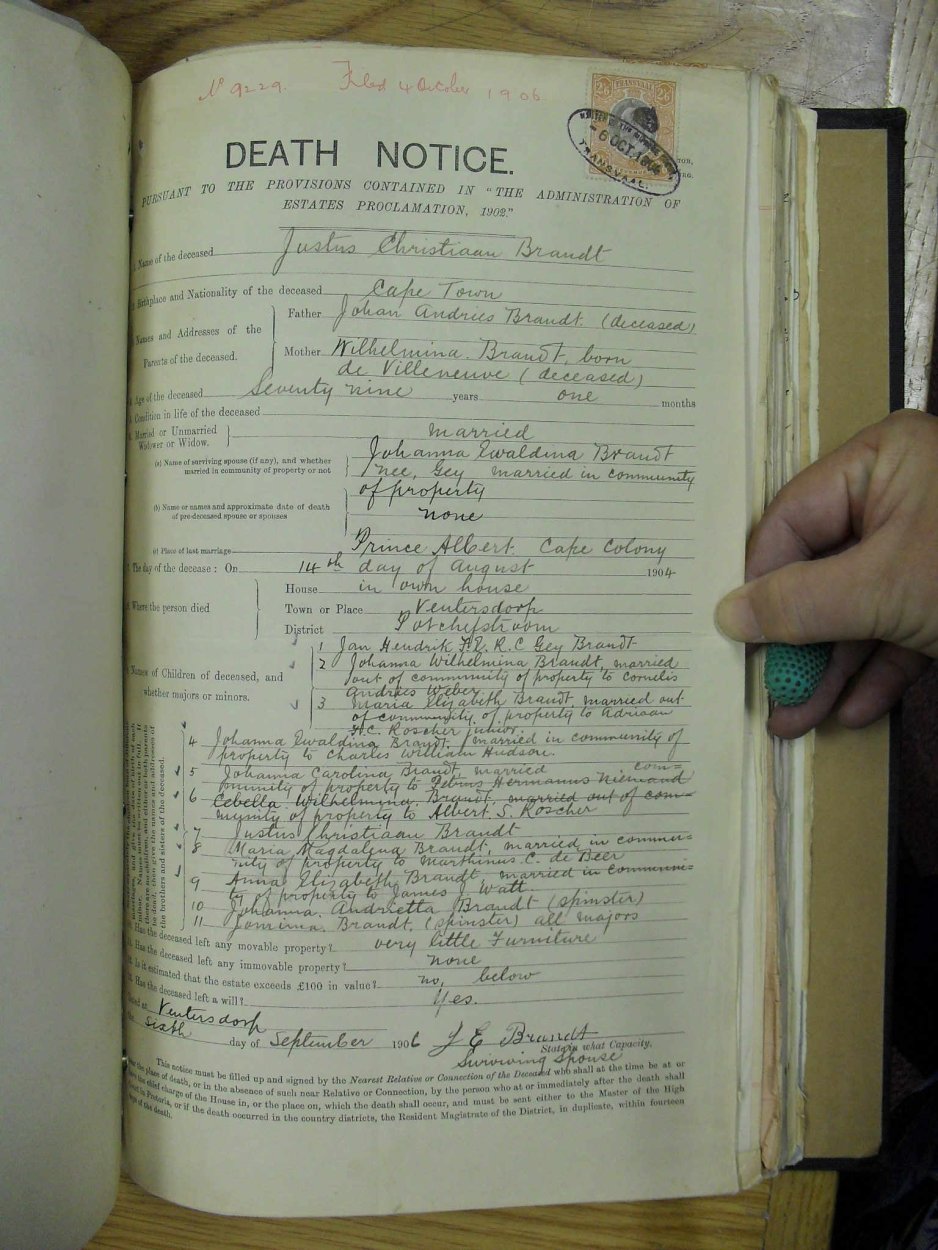 No 9229. Filed 4 October 1906
TRANSVAAL
2/6 2/6
6 OCT. 190
TRANSVAAL.
DEATH NOTICE.
PURSUANT TO THE PROVISIONS CONTAINED IN "THE ADMINISTRATION OF
ESTATES PROCLAMATION, 1902."
Name of the deceased Justus Christiaan Brandt
Birthplace and Nationality of the deceased Cape Town
Names and Addresses of the
Parents of the deceased.
Father Johan Andries Brandt (deceased)
Mother Wilhelmina Brandt, born
de Villeneuve (deceased)
Age of the deceased Seventy nine years one months
Condition in life of the deceased
Married or Unmarried
Widower or Widow.
married
(a) Name of surviving spouse (if any), and whether
married in community of property or not
Johanna Ewaldina Brandt
nee, Gey married in community
of property
(b) Name or names and approximate date of death
of pre-deceased spouse or spouses
none
(c) Place of last marriage Prince Albert. Cape Colony
The day of the decease: On 14th day of August 1904
Where the person died
House in own house
Town or Place Ventersdorp
District Potchefstroom
Names of Children of deceased, and
whether majors or minors.
1 Jan Hendrik F.E.R.C Gey Brandt
2 Johanna Wilhelmina Brandt, married
out of community of property to Cornelis
Andries Weber
3 Maria Elizabeth Brandt, married out
of community of property to Adriaan
H.C. Roscher junior.
4 Johanna Ewaldina Brandt, married in community of
property to Charles William Hudson.
5 Johanna Carolina Brandt, married com=
munity of property to Petrus Hermanus Niemand
6 Cebella Wilhelmina Brandt, married out of com=
munity of property to Albert. S. Roscher
7 Justus Christiaan Brandt
8 Maria Magdalena Brandt, married in commu=
nity of property to Marthinus C. de Beer
9 Anna Elizabeth Brandt married in communi=
ty of property to James J Watt.
10 Johanna Andrietta Brandt (spinster)
11 Brandt, (spinster) all majors
the brothers and sisters of the deceased.
Has the deceased left any movable property? very little Furniture
Has the deceased left any immovable property? none
Is it estimated that the estate exceeds £100 in value? no, below
Has the deceased left a will? Yes.
Dated at Ventersdorp
the sixth day of September 1906 J E Brandt
State in what Capacity.
Surviving Spouse
This notice must be filled up and signed by the Nearest Relative or Connection of the Deceased who shall at the time be at or
near the place of death, or in the absence of such near Relative or Connection, by the person who at or immediately after the death shall
have the chief charge of the House in, or the place on, which the death shall occur, and must be sent either to the Master of the High
Court in Pretoria, or if the death occurred in the country districts, the Resident Magistrate of the District, in duplicate, within fourteen
days of the death.